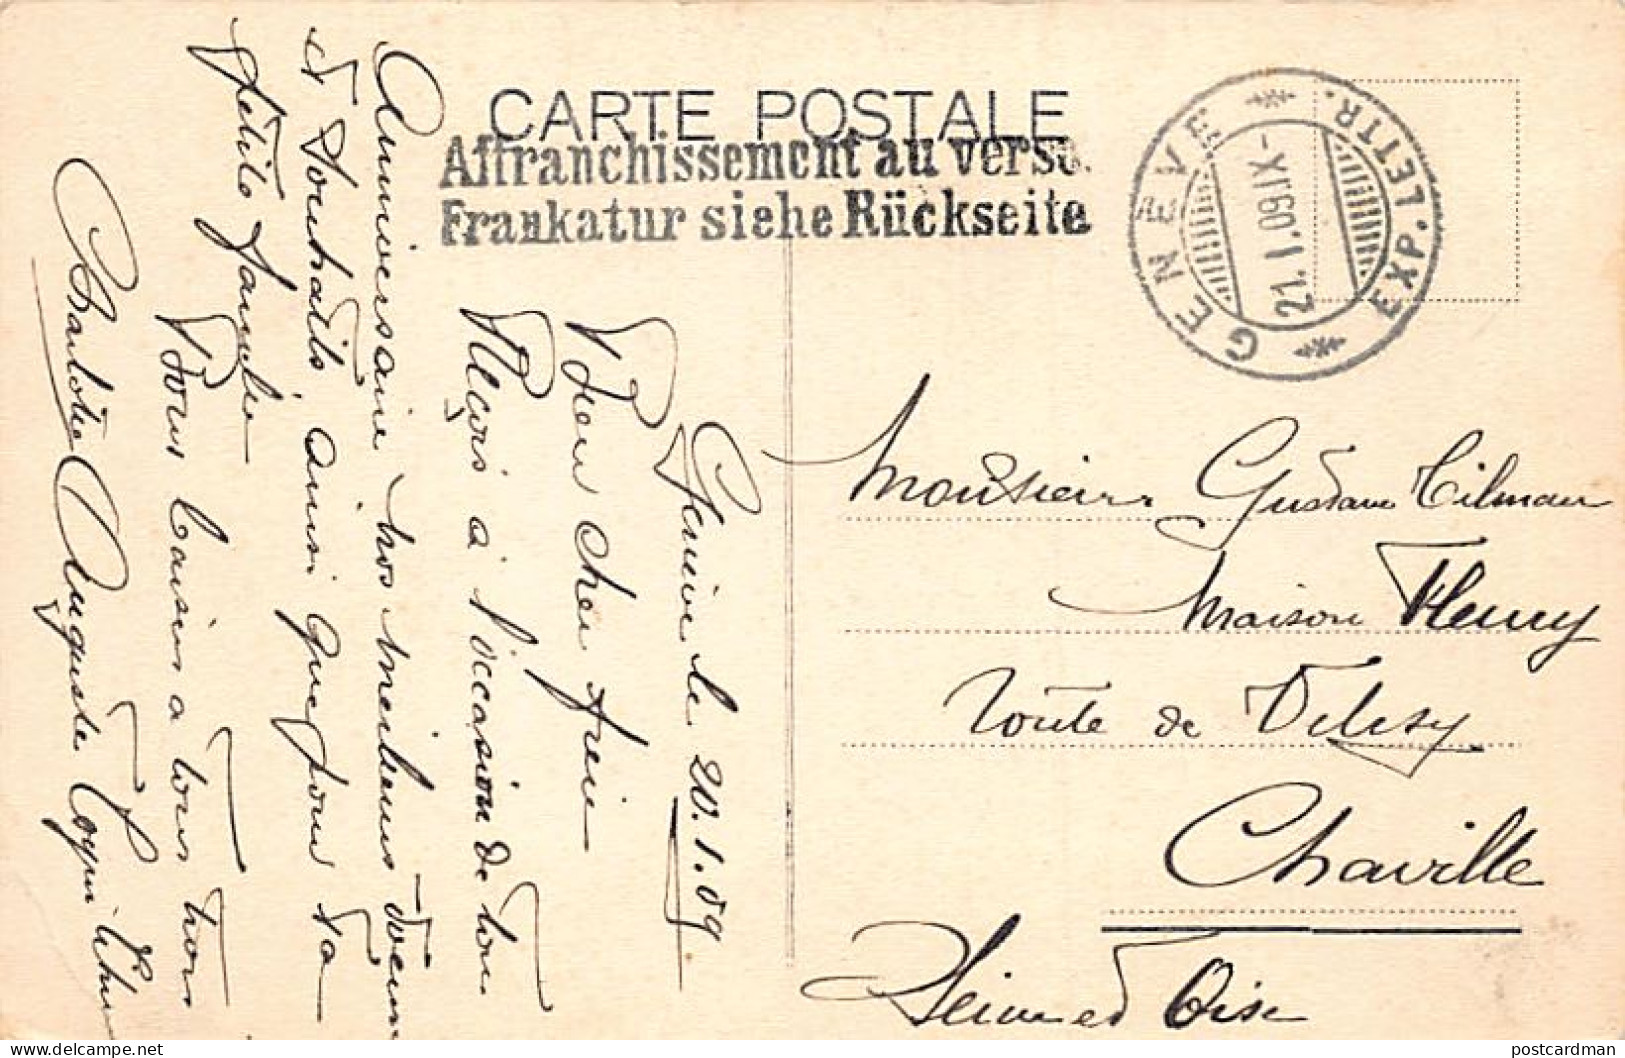 CARTE POSTALE
Affranchissement au verso.
Frankatur siehe Rückseite
GENÈVE
EXP. LETTR.
21.I.09.IX-
Monsieur Gustave Tilman
Maison Fleury
route de Vélisy
Chaville
Seine et Oise
Genève le 20.1.09
Bien cher frère
Reçois à l'occasion de ton
Anniversaire nos meilleurs voeux
et Souhaits, ainsi que pour ta
petite famille
Bons baisers à tous trois
Auguste
postcardman